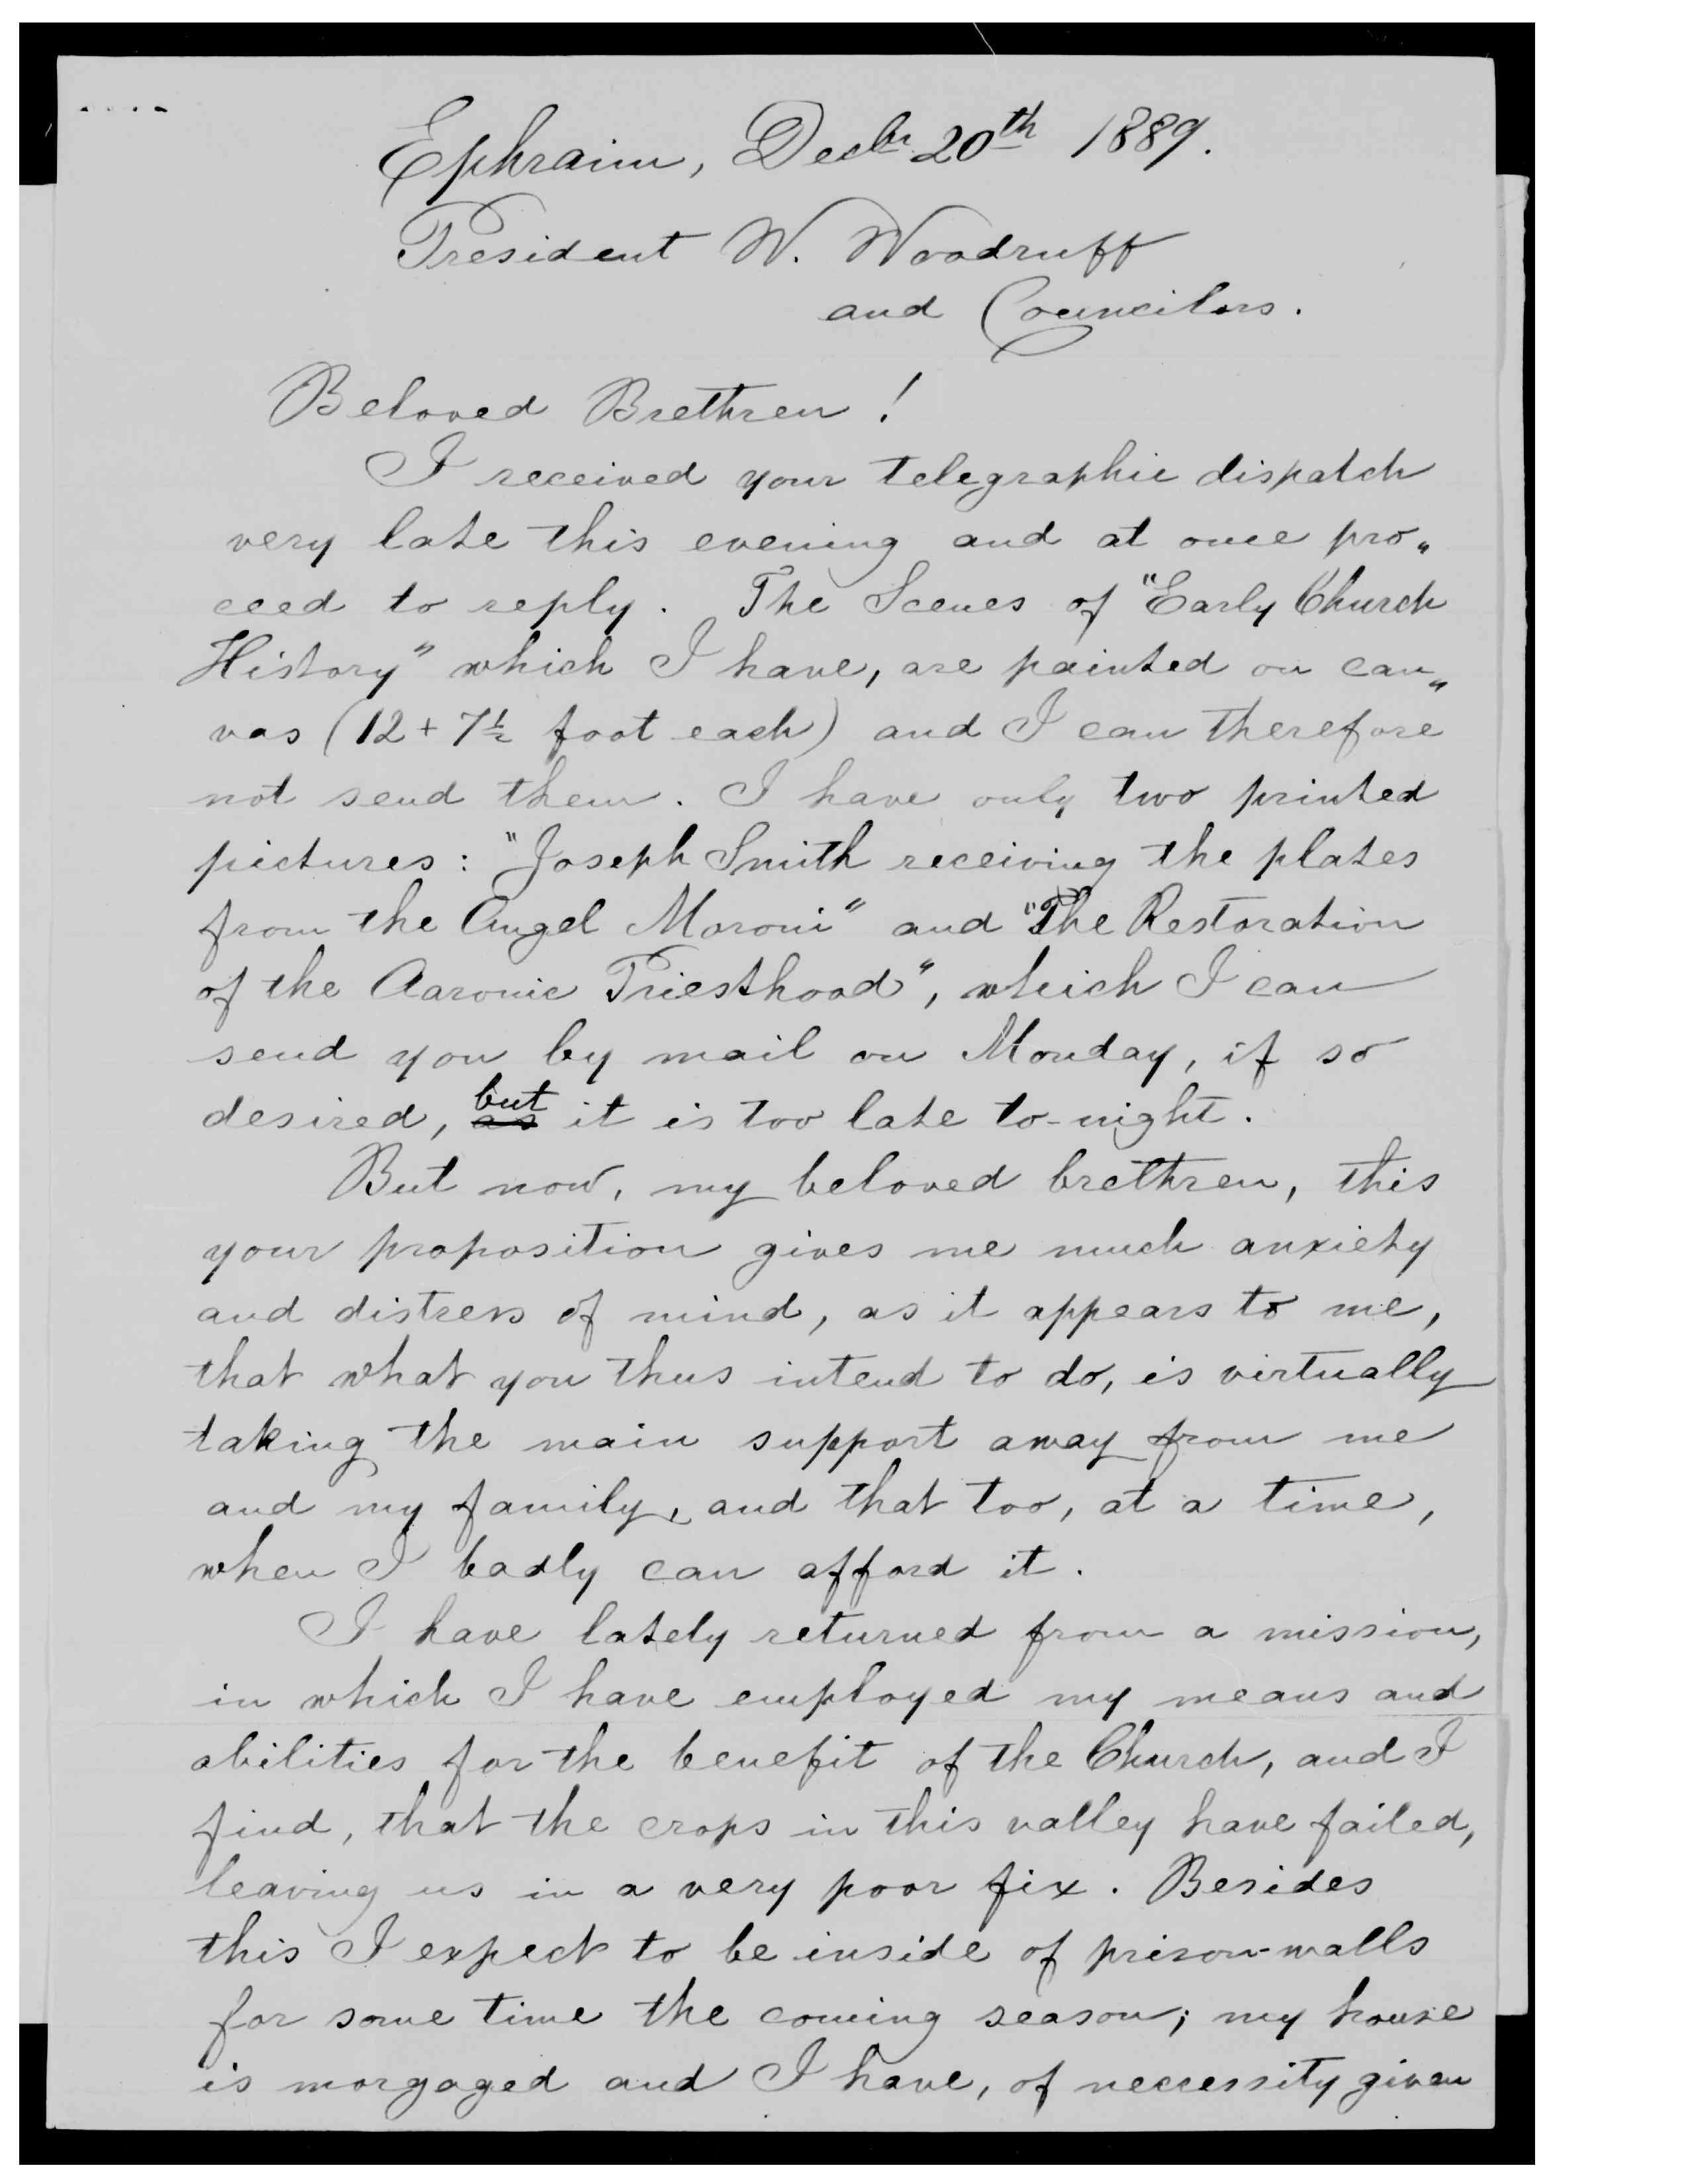 Ephraim, Decbr. 20th 1889.
President W. Woodruff
and Councilors.
Beloved Brethren!
I received your telegraphic dispatch
very late this evening and at once pro„
ceed to reply. The Scenes of "Early Church
History" which I have, are painted on can„
vas (12 + 7½ foot each) and I can therefore
not send them. I have only two printed
pictures: "Joseph Smith receiving the plates
from the Angel Moroni" and "The Restoration
of the Aaronic Priesthood", which I can
send you by mail on Monday, if so
desired, as but it is too late to-night.
But now, my beloved brethren, this
your proposition gives me much anxiety
and distress of mind, as it appears to me,
that what you thus intend to do, is virtually
taking the main support away from me
and my family, and that too, at a time,
when I badly can afford it.
I have lately returned from a mission,
in which I have employed my means and
abilities for the benefit of the Church, and I
find, that the crops in this valley have failed,
leaving us in a very poor fix. Besides
this I expect to be inside of prison-walls
for some time the coming season; my house
is morgaged and I have, of neccessity given